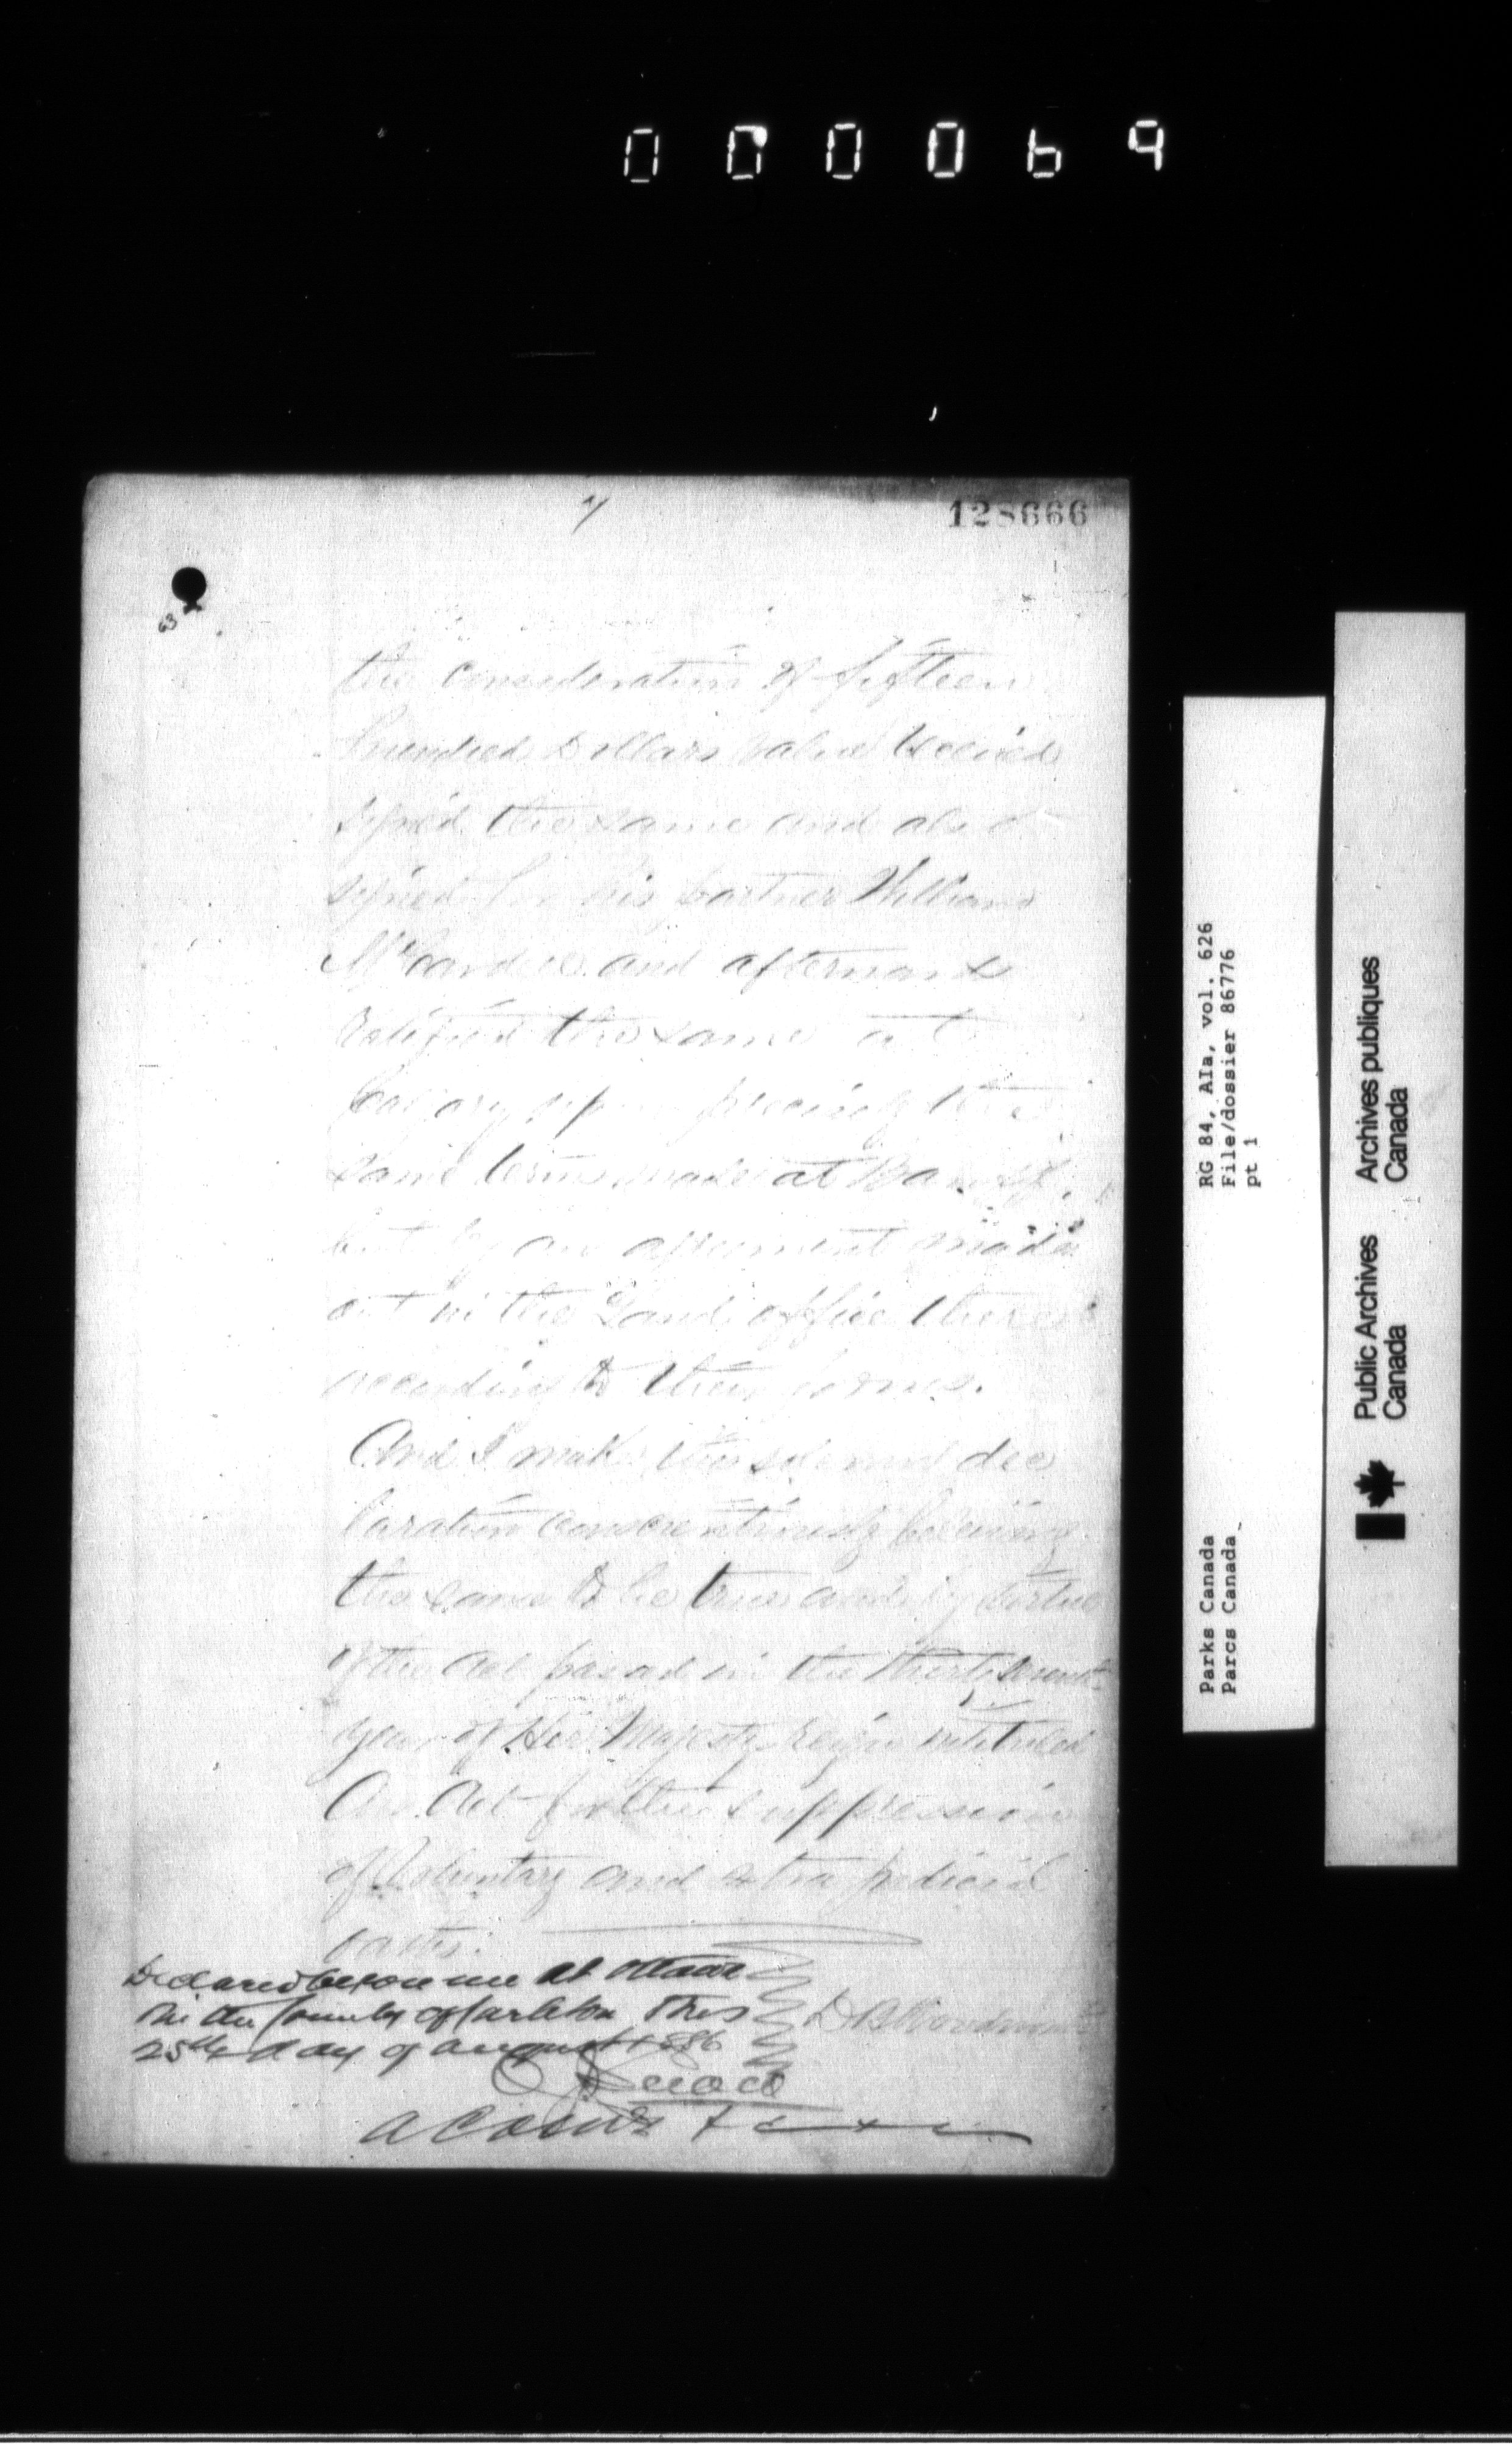 000069
7
128666
63
the consideration of fifteen
hundred Dollars value received
signed the same and also
signed for his partner William
McCardle and afterwards
ratified the same at
Calgary upon precisely the
same terms made at Banff
but by an agreement made
out in the Land office there
according to their forms.
And I make this solemn dec
laration conscientiously believing
the same to be true and by virtue
of the Act passed in the thirty seventh
year of Her Majestys Reign intituled
An Act for the Suppression
of Voluntary and extra judicial
oaths.
Declared before me at Ottawa
in the County of Carleton this
25th day of August 1886
D B Woodworth
A Comr
RG 84, AIa, vol. 626
File/dossier 86776
pt 1
Parks Canada
Parcs Canada
Public Archives
Canada
Archives publiques
Canada